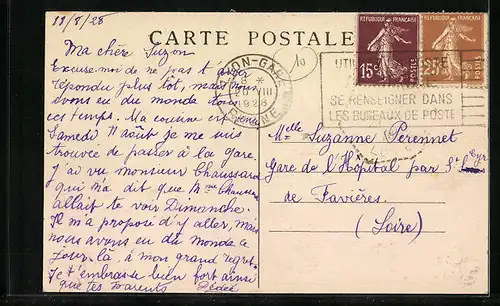 11/8/28
CARTE POSTALE
Ma chère Suzon
Excuse-moi de ne pas t'avoir
répondu plus tôt, mais nous
avons eu du monde tous
ces temps. Ma cousine est venue
Samedi 11 août je me suis
trouvée de passer à la gare.
J'ai vu monsieur Chaussard
qui m'a dit que Mme Chaussard
allait te voir Dimanche.
Il m'a proposé d'y aller, mais
nous avons eu du monde ce
jour-là à mon grand regret.
Je t'embrasse bien fort ainsi
que tes Parents
REPUBLIQUE FRANÇAISE
15c
POSTES
REPUBLIQUE FRANÇAISE
25c
POSTES
LYON-GARE
1928
RHONE
UTIL
SE RENSEIGNER DANS
LES BUREAUX DE POSTE
Melle Suzanne Perennet
Gare de l'Hôpital par St Cyr
de Favières
(Loire)